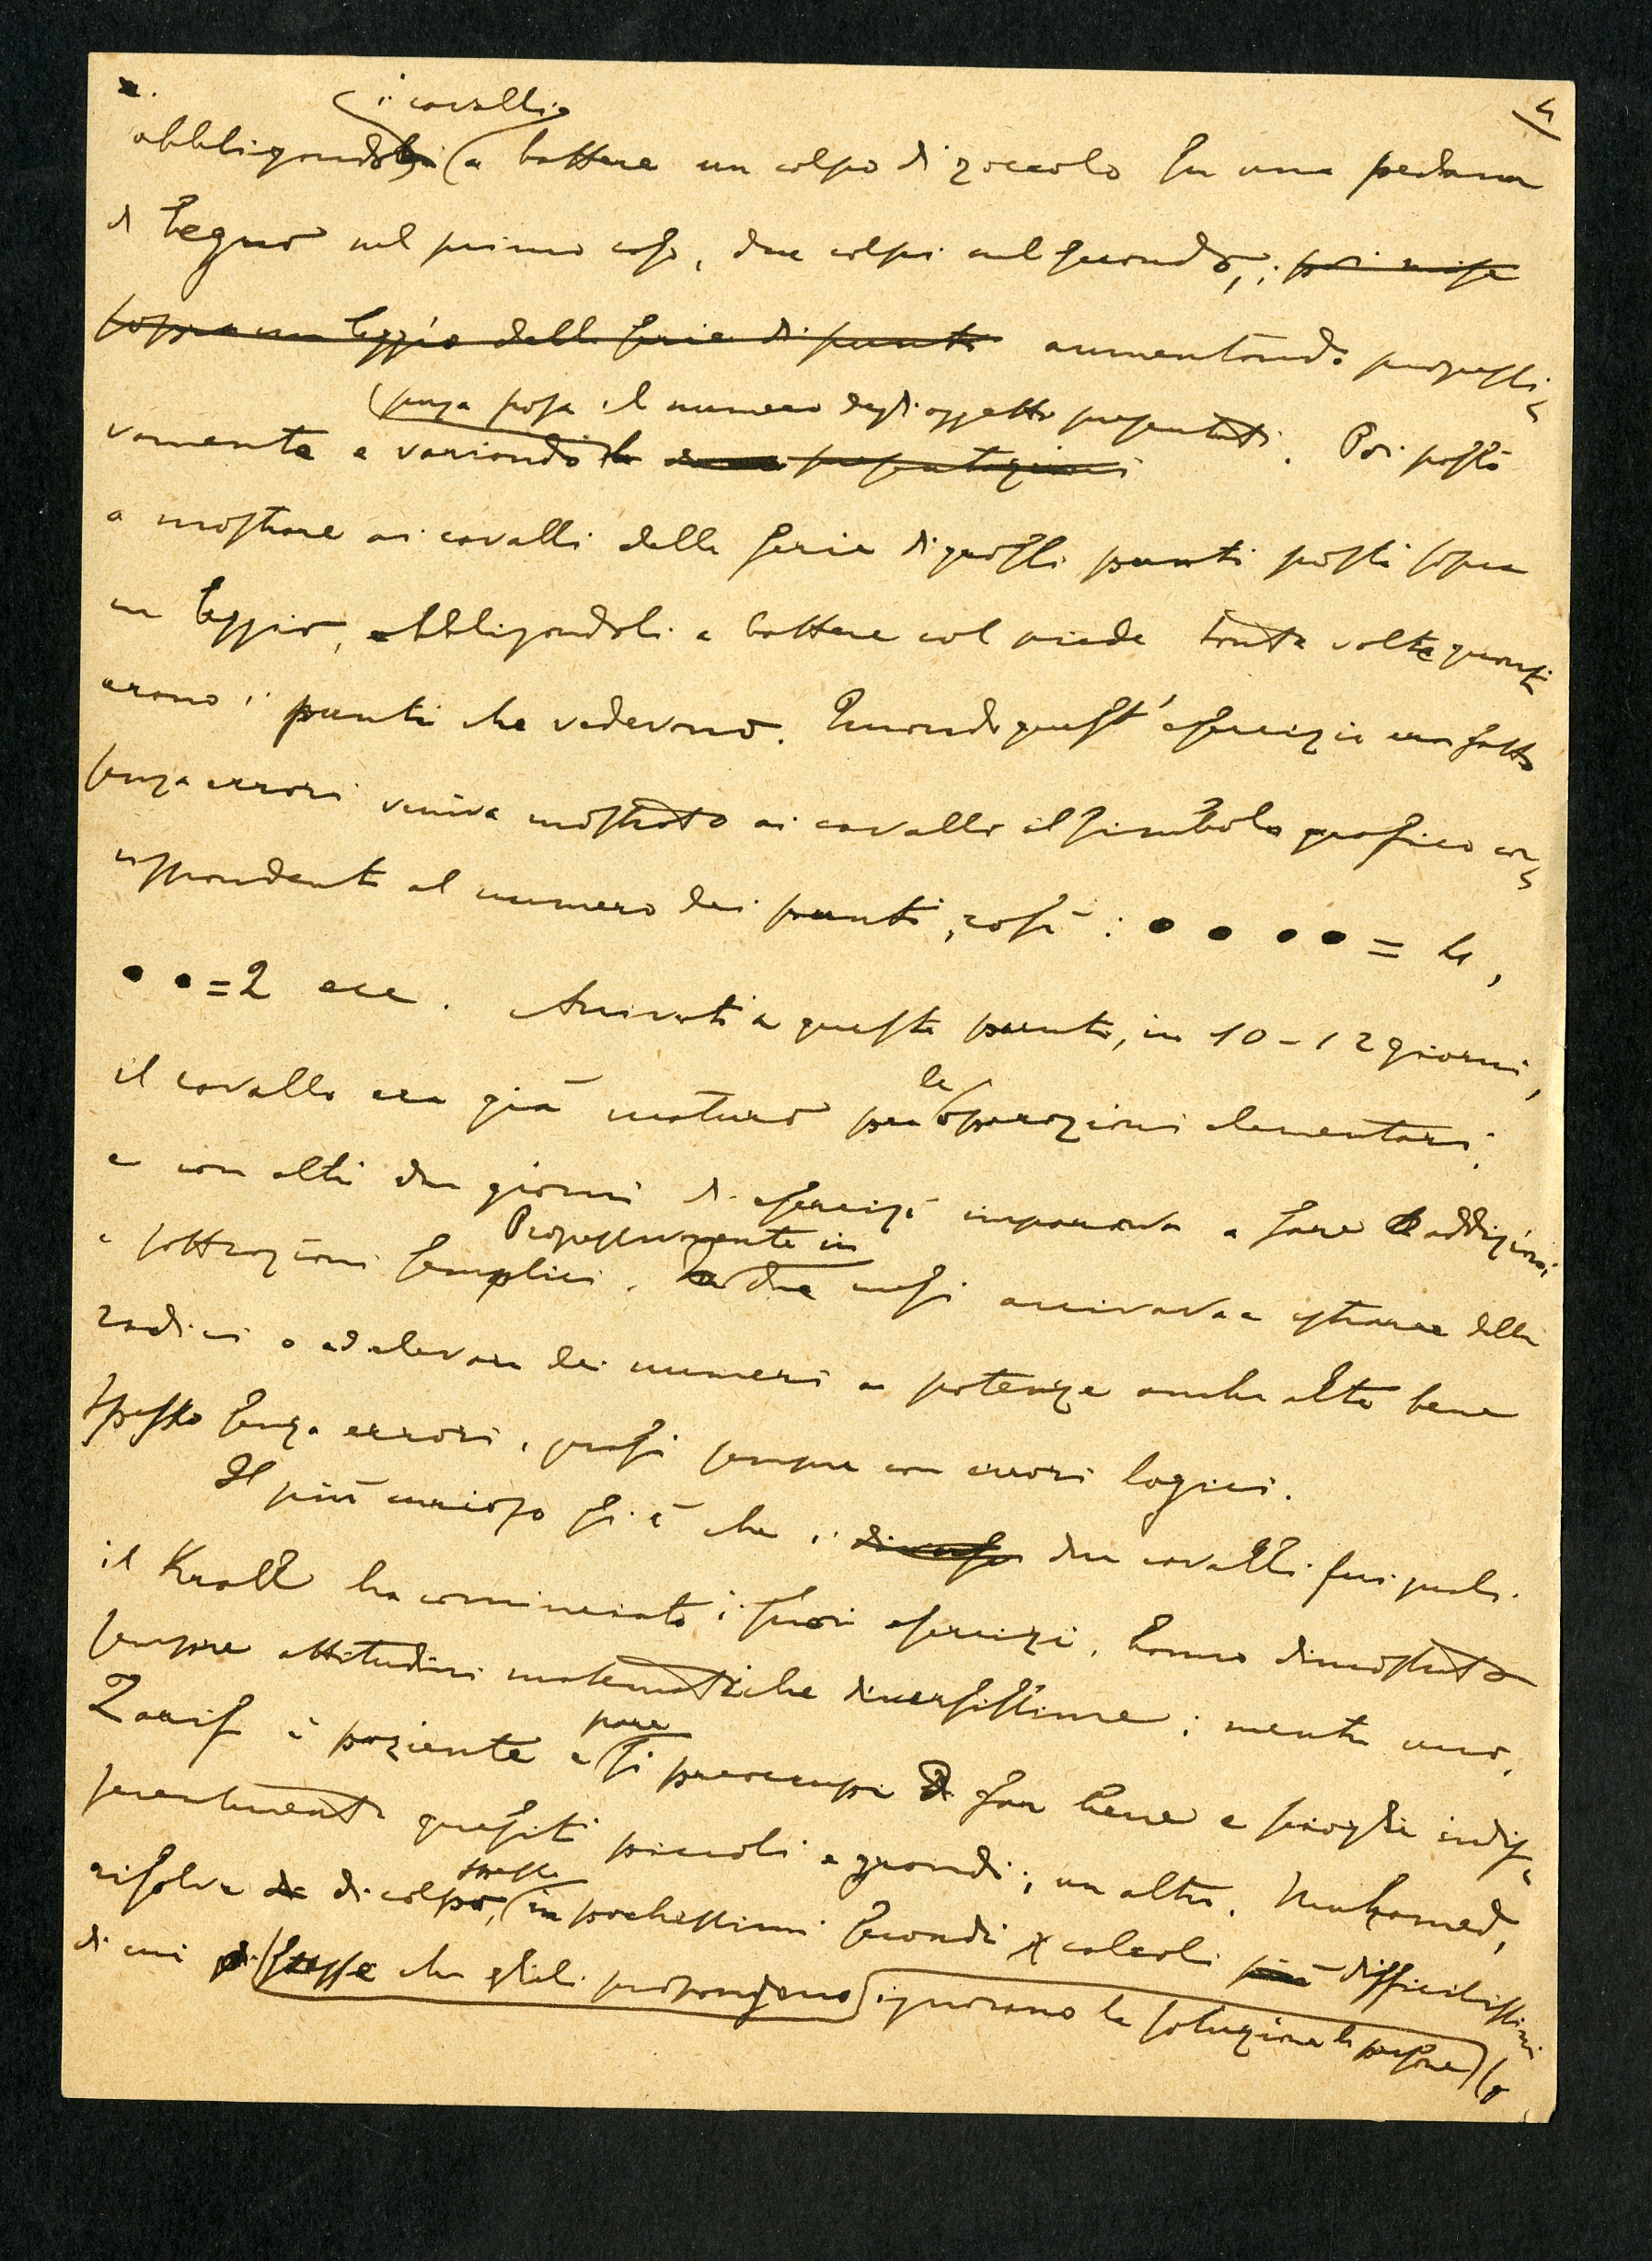 4
i cavalli
obbligando a battere un colpo di zoccolo su una pedana
di legno nel primo caso, due colpi nel secondo, ; poi mise
sopra un leggio delle serie di punti aumentando progressi-
senza posa il numero degli oggetti presentati. Poi passò
vamente e variando le presentazioni
a mostrare ai cavalli delle serie di grossi punti posti sopra
un leggio, obbligandoli a battere col piede tante volte quanti
erano i punti che vedevano. Quando quest'esercizio era fatto
senza errori veniva mostrato ai cavalli il simbolo grafico cor-
rispondente al numero dei punti, così: • • • • = 4,
• • = 2 ecc. Arrivati a questo punto, in 10-12 giorni,
le
il cavallo era già maturo per operazioni elementari,
e con altri due giorni di esercizi imparava a fare addizioni
Progressivamente in
e sottrazioni semplici. due mesi arrivava a estrarre delle
radici o ad elevare dei numeri a potenze anche alte bene
spesso senza errori, quasi sempre con errori logici.
Il più curioso si è che i due cavalli sui quali
il Krall ha cominciato i suoi esercizi, hanno dimostrato
sempre attitudini matematiche diversissime; mentre uno,
pare
Zarif è paziente e si preoccupi di far bene e scioglie indif-
ferentemente quesiti piccoli e grandi; un altro, Muhamed,
spesso
risolve di colpo, in pochissimi secondi calcoli più difficilissimi
di cui spesse che glieli propongono ignorano la soluzione le persone